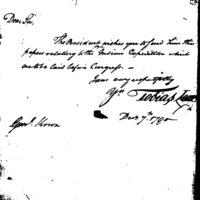 Dear Sir,
The President wishes you to send him the
papers relating to the Indian Expedition which
are to be laid before Congress. —
I am very respectfully
Yrs
Tobias Lear
Genl. Knox
Decr. 7th. 1790